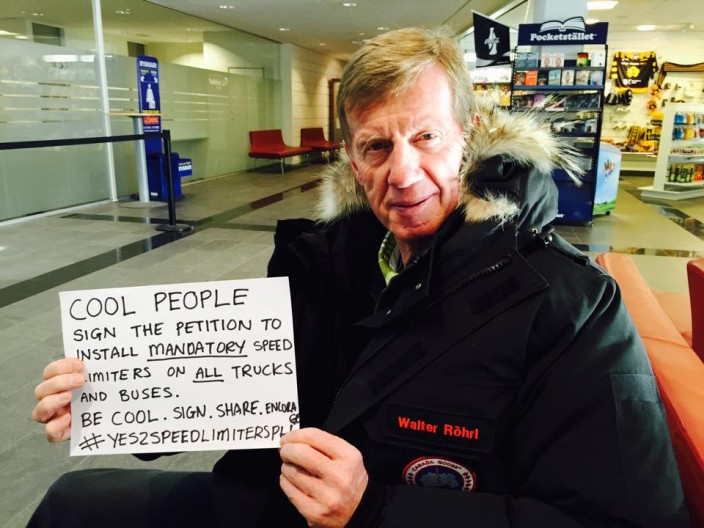 COOL PEOPLE
SIGN THE PETITION TO
INSTALL MANDATORY SPEED
LIMITERS ON ALL TRUCKS
AND BUSES.
BE COOL. SIGN. SHARE.
#YES2SPEEDLIMITERSPL
Walter Röhrl
CANADA GOOSE
Pocketstället